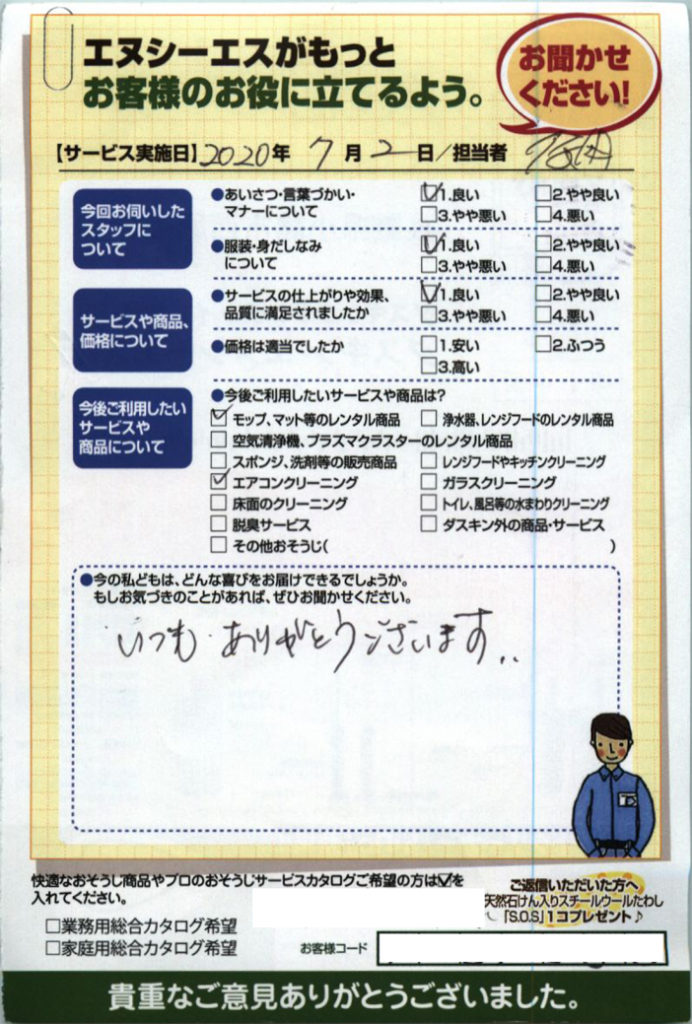 エヌシーエスがもっと
お客様のお役に立てるよう。
お聞かせ
ください!
【サービス実施日】2020年 7月 2日/担当者
今回お伺いした
スタッフに
ついて
●あいさつ・言葉づかい・
マナーについて
☑1.良い □2.やや良い
□3.やや悪い □4.悪い
●服装・身だしなみ
について
☑1.良い □2.やや良い
□3.やや悪い □4.悪い
サービスや商品、
価格について
●サービスの仕上がりや効果、
品質に満足されましたか
☑1.良い □2.やや良い
□3.やや悪い □4.悪い
●価格は適当でしたか
□1.安い □2.ふつう
□3.高い
今後ご利用したい
サービスや
商品について
●今後ご利用したいサービスや商品は?
☑モップ、マット等のレンタル商品 □浄水器、レンジフードのレンタル商品
□空気清浄機、プラズマクラスターのレンタル商品
□スポンジ、洗剤等の販売商品 □レンジフードやキッチンクリーニング
☑エアコンクリーニング □ガラスクリーニング
□床面のクリーニング □トイレ、風呂等の水まわりクリーニング
□脱臭サービス □ダスキン外の商品・サービス
□その他おそうじ( )
●今の私どもは、どんな喜びをお届けできるでしょうか。
もしお気づきのことがあれば、ぜひお聞かせください。
いつも ありがとうございます..
快適なおそうじ商品やプロのおそうじサービスカタログご希望の方は☑を
入れてください。
□業務用総合カタログ希望
□家庭用総合カタログ希望
ご返信いただいた方へ
天然石けん入りスチールウールたわし
「S.O.S」1コプレゼント♪
お客様コード
貴重なご意見ありがとうございました。